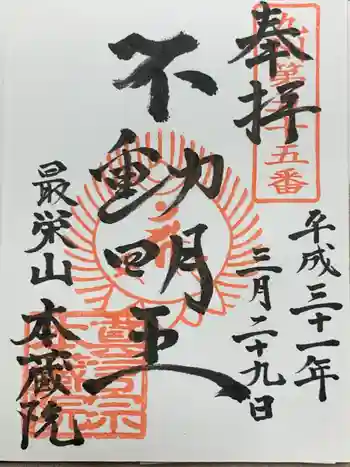 奉拝
第
五番
平成三十一年
三月二十九日
不動明王
最栄山
本蔵院